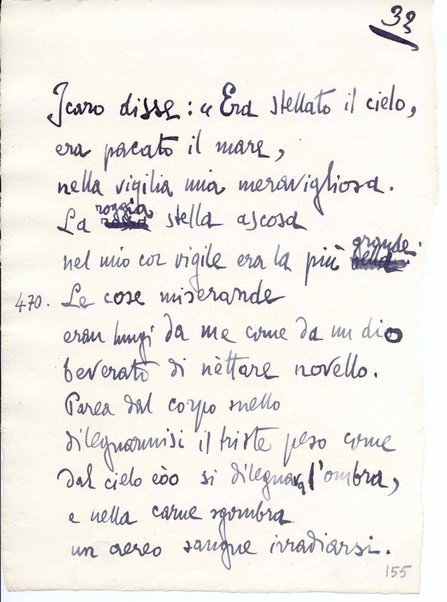 33
Icaro disse: « Era stellato il cielo,
era pacato il mare,
nella vigilia mia meravigliosa.
La roggia stella ascosa
nel mio cor vigile era la più grande.
470. Le cose miserande
eran lungi da me come da un dio
beverato di nèttare novello.
Parea dal corpo snello
dileguarmisi il triste peso come
dal cielo èòo si dileguava l'ombra,
e nella carne sgombra
un aereo sangue irradiarsi.
155